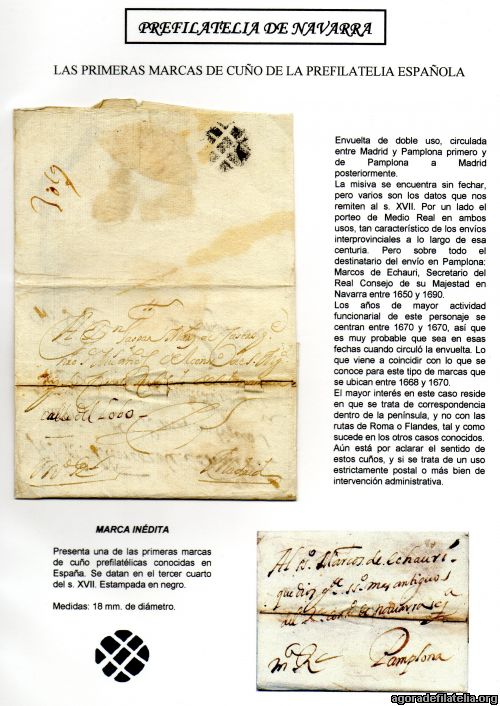 PREFILATELIA DE NAVARRA
LAS PRIMERAS MARCAS DE CUÑO DE LA PREFILATELIA ESPAÑOLA
Envuelta de doble uso, circulada
entre Madrid y Pamplona primero y
de Pamplona a Madrid
posteriormente.
La misiva se encuentra sin fechar,
pero varios son los datos que nos
remiten al s. XVII. Por un lado el
porteo de Medio Real en ambos
usos, tan característico de los envíos
interprovinciales a lo largo de esa
centuria. Pero sobre todo el
destinatario del envío en Pamplona:
Marcos de Echauri, Secretario del
Real Consejo de su Majestad en
Navarra entre 1650 y 1690.
Los años de mayor actividad
funcionarial de este personaje se
centran entre 1670 y 1670, así que
es muy probable que sea en esas
fechas cuando circuló la envuelta. Lo
que viene a coincidir con lo que se
conoce para este tipo de marcas que
se ubican entre 1668 y 1670.
El mayor interés en este caso reside
en que se trata de correspondencia
dentro de la península, y no con las
rutas de Roma o Flandes, tal y como
sucede en los otros casos conocidos.
Aún está por aclarar el sentido de
estos cuños, y si se trata de un uso
estrictamente postal o más bien de
intervención administrativa.
calle del Lobo
Madrid
MARCA INÉDITA
Presenta una de las primeras marcas
de cuño prefilatélicas conocidas en
España. Se datan en el tercer cuarto
del s. XVII. Estampada en negro.
Medidas: 18 mm. de diámetro.
Al Sr. Marcos de Echauri
que Dios gde
Pamplona
agoradefilatelia.org